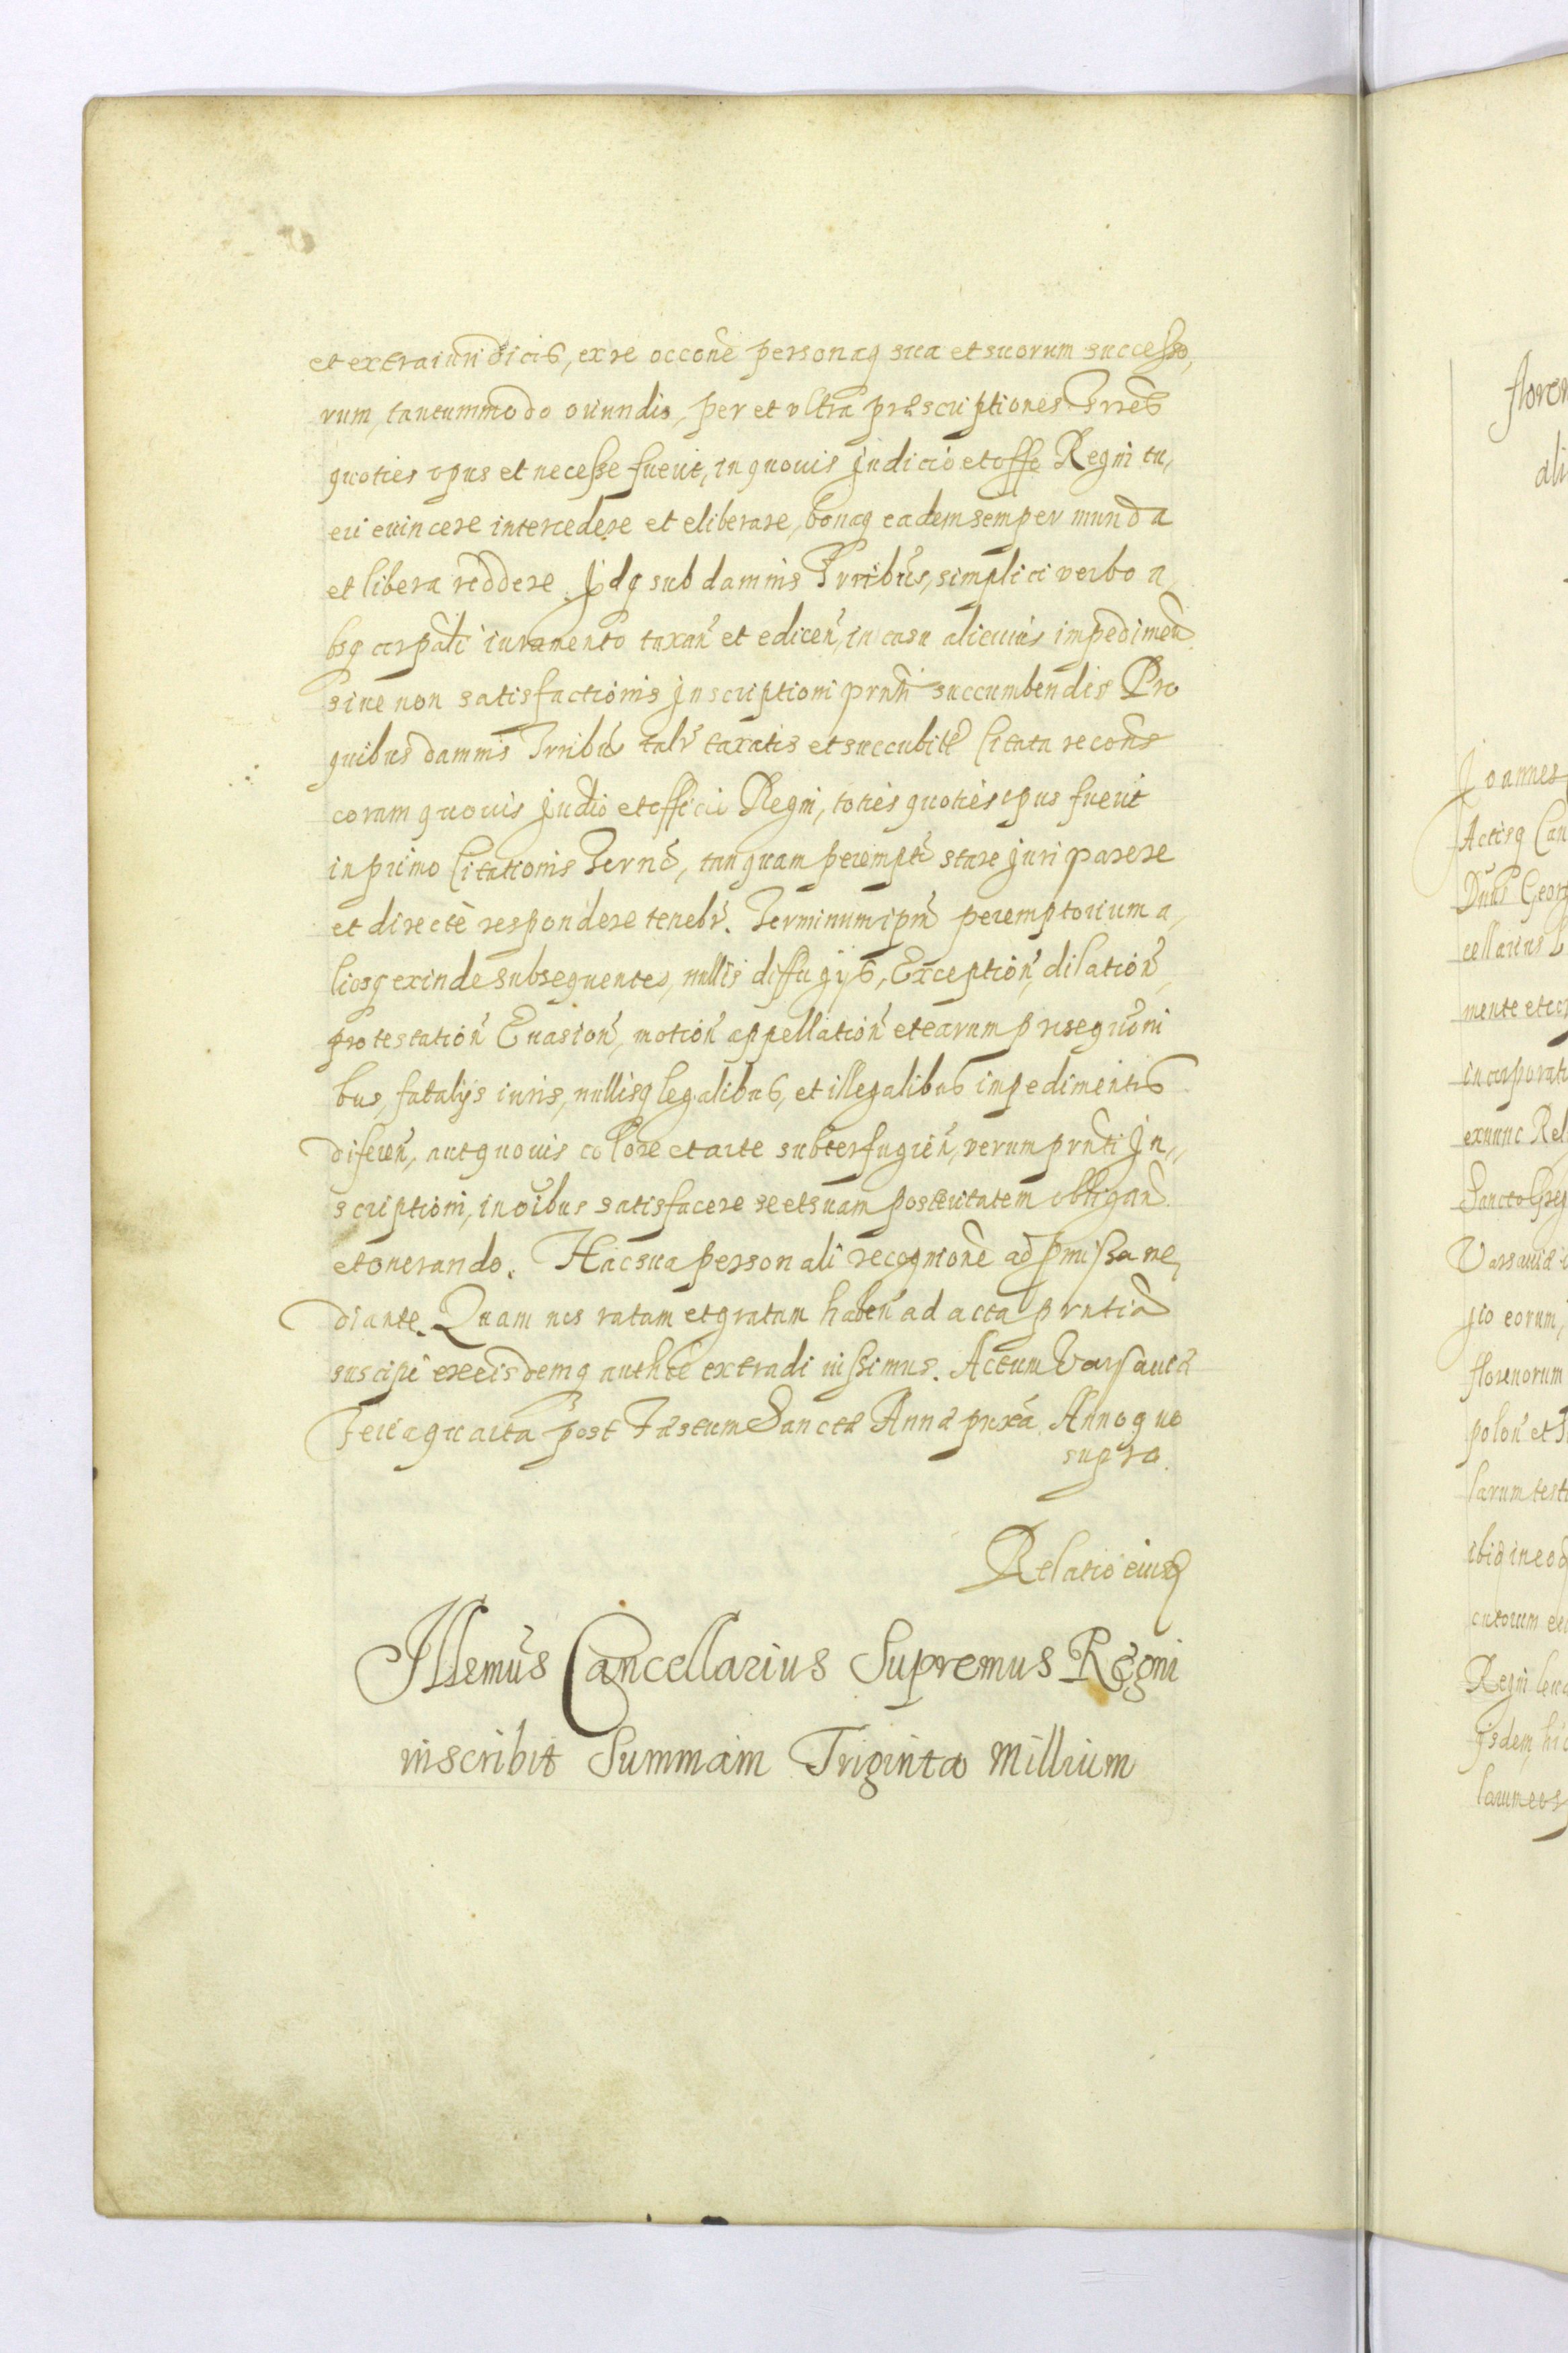 et extraiuridicis, ex re occone personaq sua et suorum successo,
rum, tantummodo oriundis, per et ultra præscriptiones Trres
quoties opus et necesse fuerit, in quovis Judicio et offo Regni tu,
eri evincere intercedere et eliberare, bonaq eadem semper munda
et libera reddere. Idq sub damnis Trribus, simplici verbo a,
bsq corpali iuramento taxan et edicen, in casu alicuius impedimen
sive non satisfactionis Inscriptioni prnti succumbendis Pro
quibus damnis Trribus talr taxatis et succubite Citata recons
coram quovis Judio et officii Regni, toties quoties opus fuerit
in primo Citationis Termo, tanquam perempte stare juri parere
et directe respondere tenebr. Terminum ipm peremptorium a,
liosq exinde subsequentes, nullis diffugijs, Exception, dilation,
protestation Evasion, motion appellation et earum prosequoni
bus, fatalijs iuris, nullisq legalibus, et illegalibus impedimentis
diferen, aut quovis colore et arte subterfugien, verum prnti In,,
scriptioni, in oibus satisfacere se et suam posteritatem obligand
et onerando. Hac sua personali recognione ad pmissa me,
diante. Quam nos ratam et gratam haben ad acta prntia
suscipi ex eisdemq authce extradi iussimus. Actum Varsaviæ
Feria quarta post Festum Sanctæ Annæ proxa Anno quo
supra.
Relatio eiusd
Illmus Cancellarius Supremus Regni
inscribit Summam Triginta Millium
floren
ali
Joannes
Actisq Can
Dnus Georg
cellarius
mente et cor
incorporat
exnunc Rel
Sancto Greg
Varsaviæ
pio eorum,
florenorum
polon et
larum test
ibid in eod
cutorum
Regni